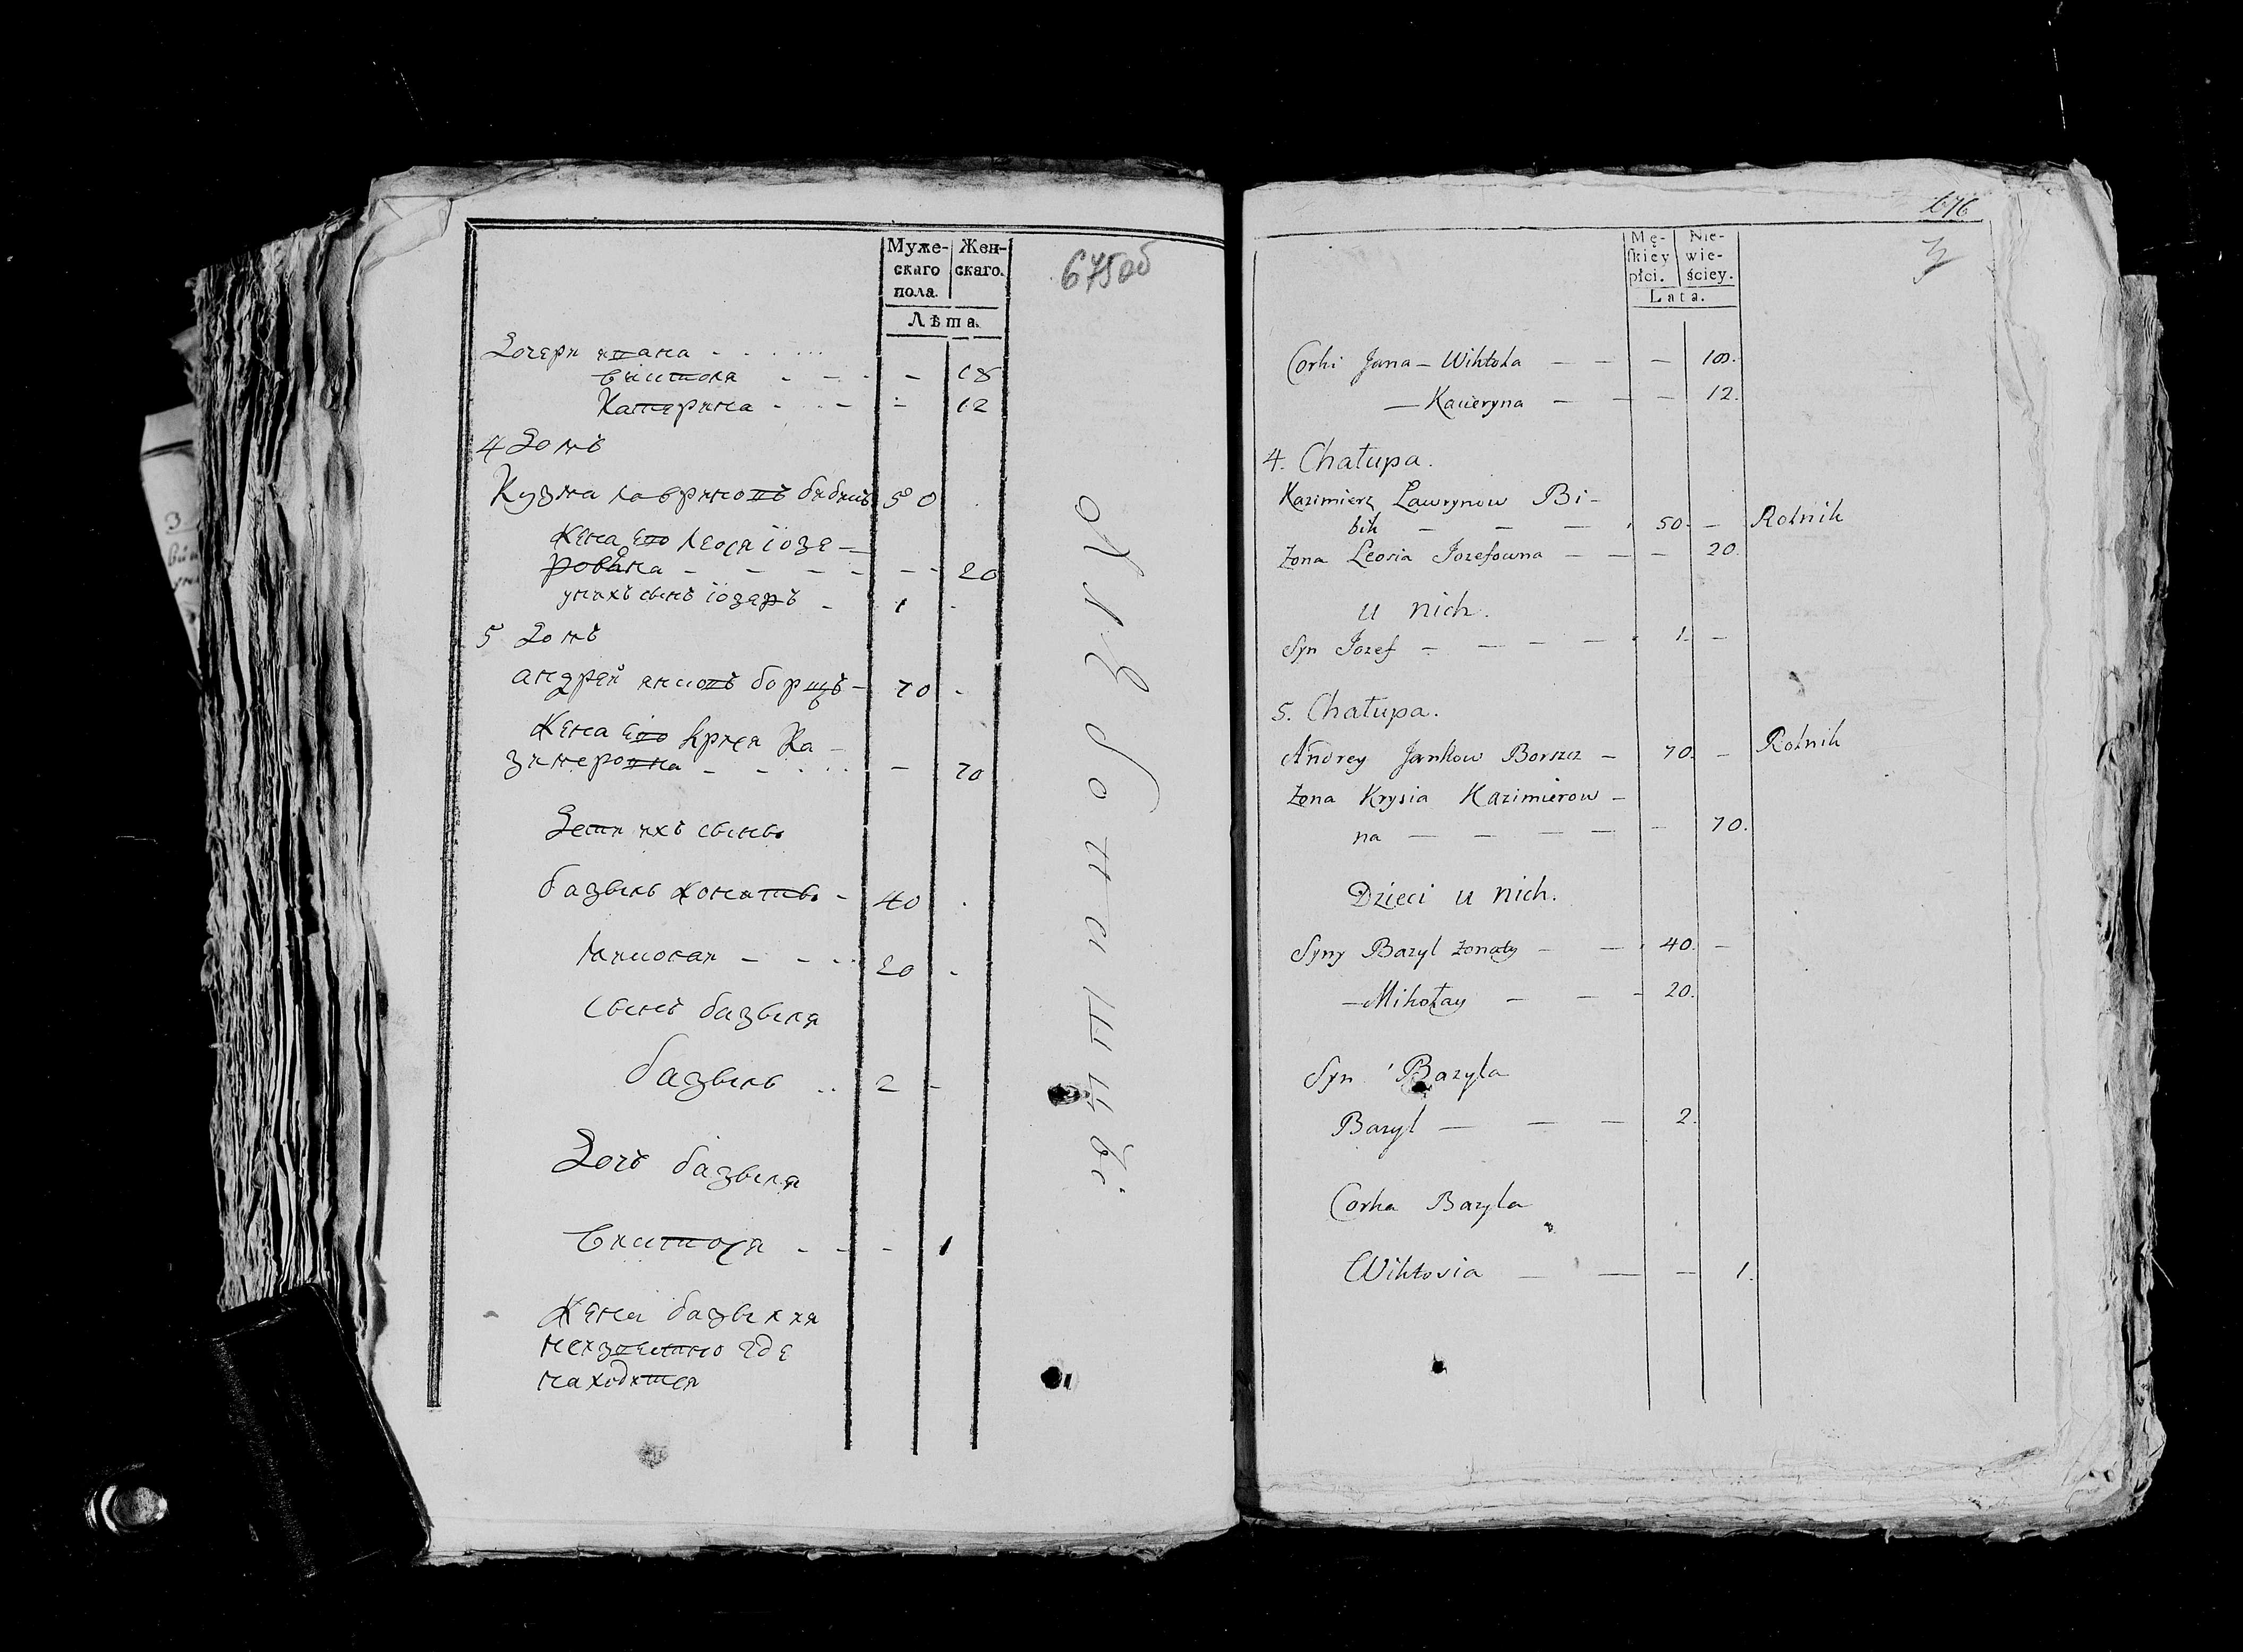 Муже-
скаго
пола.
Жен-
скаго.
Лѣта.
675об
Дочери ивана - - - - -
виктося - - - - 18
Катерина - - - - - 12
4 Домъ
Кузма лавриновъ бибикъ 50
Жена Его леося іозе-
ровъна - - - - - - 20
уnихъ сынъ іозефъ - 1 -
5 Домъ
андрей янковъ борщъ - 70 -
Жена Его крися Ка-
зимеровна - - - - - 70
Дети ихъ сынъ
базыль жонатъ - 40 -
миколай - - - 20 -
сынъ базыля
базыль - - 2 -
Дочъ базыля
виктося - - - 1
Жена базыліия
неизвестно где
находится
676
3
Mę-
skiey
płci.
Nie-
wie-
ściey.
Lata.
Corki Jana - Wiktola — — — 10.
— Kacieryna — — — 12.
4. Chałupa.
Kazimierz Lawrynow Bi-
bik — — — 50. — Rolnik
Żona Leosia Jozefowna — — — 20.
u nich.
Syn Jozef — — — — 1. —
5. Chałupa.
Andrey Jankow Borszcz — 70. — Rolnik
Żona Krysia Kazimierow-
na — — — — — 70.
Dzieci u nich.
Syny Bazyl żonaty — — 40. —
— Mikołay — — - 20.
Syn Bazyla
Bazyl — — — 2.
Corka Bazyla
Wiktosia — — — 1.